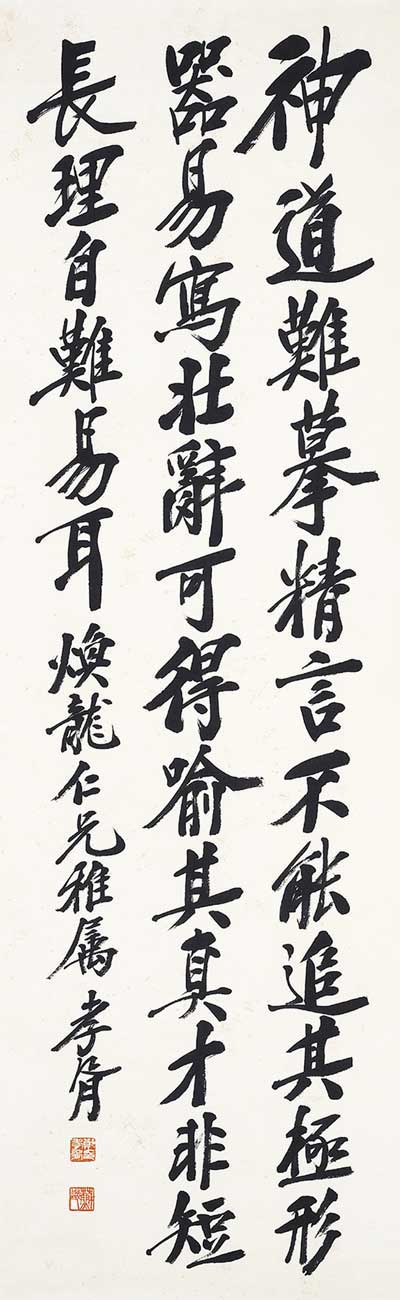 神道難摹精言不能追其極形
器易寫壯辭可得喻其真才非短
長理自難易耳 煥龍仁兄雅屬 孝胥